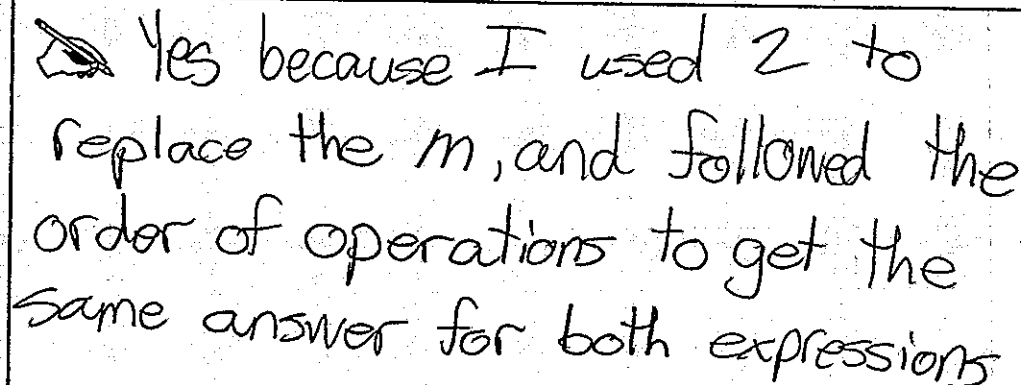 Yes because I used 2 to
replace the m, and followed the
order of operations to get the
same answer for both expressions